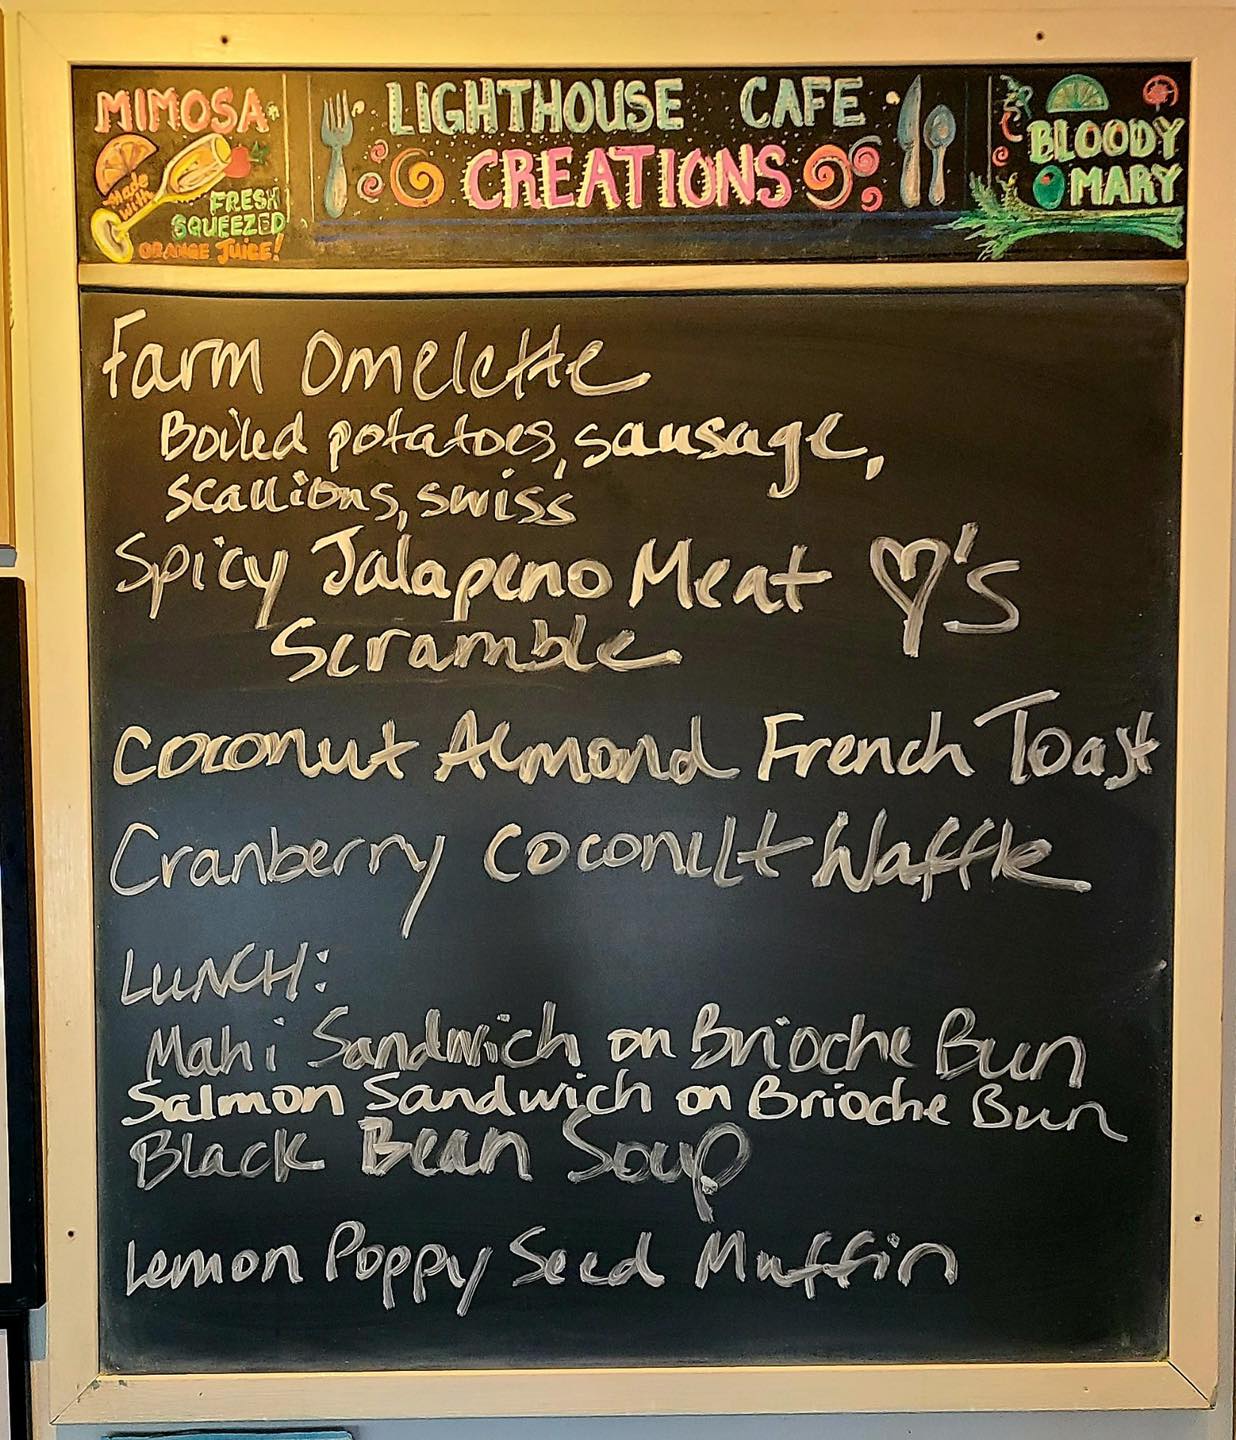 MIMOSA
made with
FRESH
SQUEEZED
ORANGE JUICE!
LIGHTHOUSE CAFE
CREATIONS
BLOODY
MARY
Farm Omelette
Boiled potatoes, sausage,
scallions, swiss
Spicy Jalapeno Meat ♡'s
Scramble
Coconut Almond French Toast
Cranberry Coconut Waffle
LUNCH:
Mahi Sandwich on Brioche Bun
Salmon Sandwich on Brioche Bun
Black Bean Soup
Lemon Poppy Seed Muffin